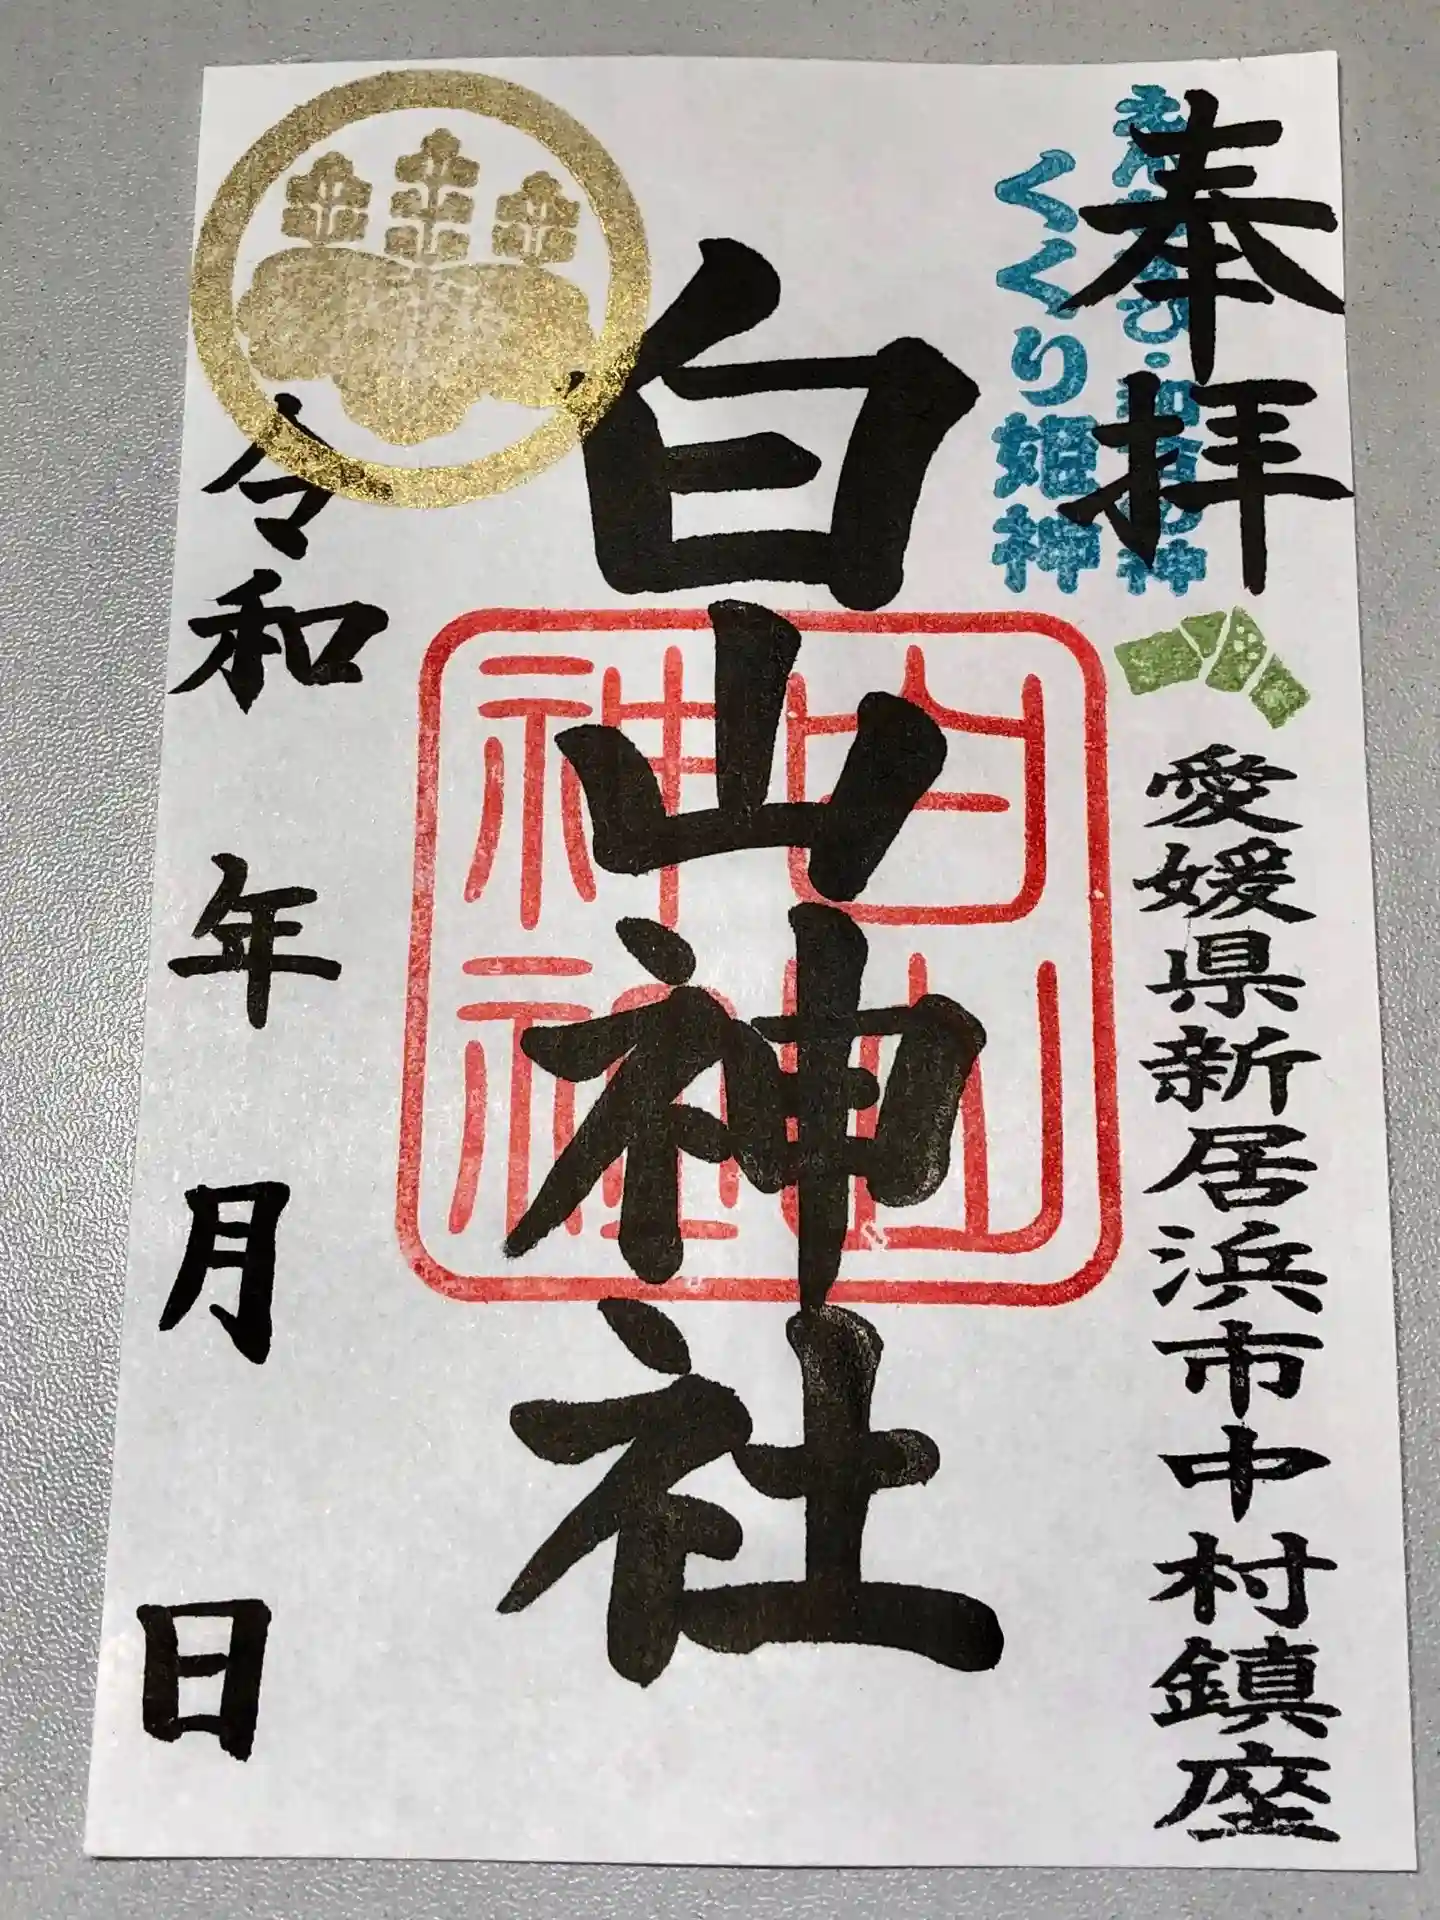 奉拝
神
くくり姫神
愛媛県新居浜市中村鎮座
白山神社
白山神社
令和 年 月 日